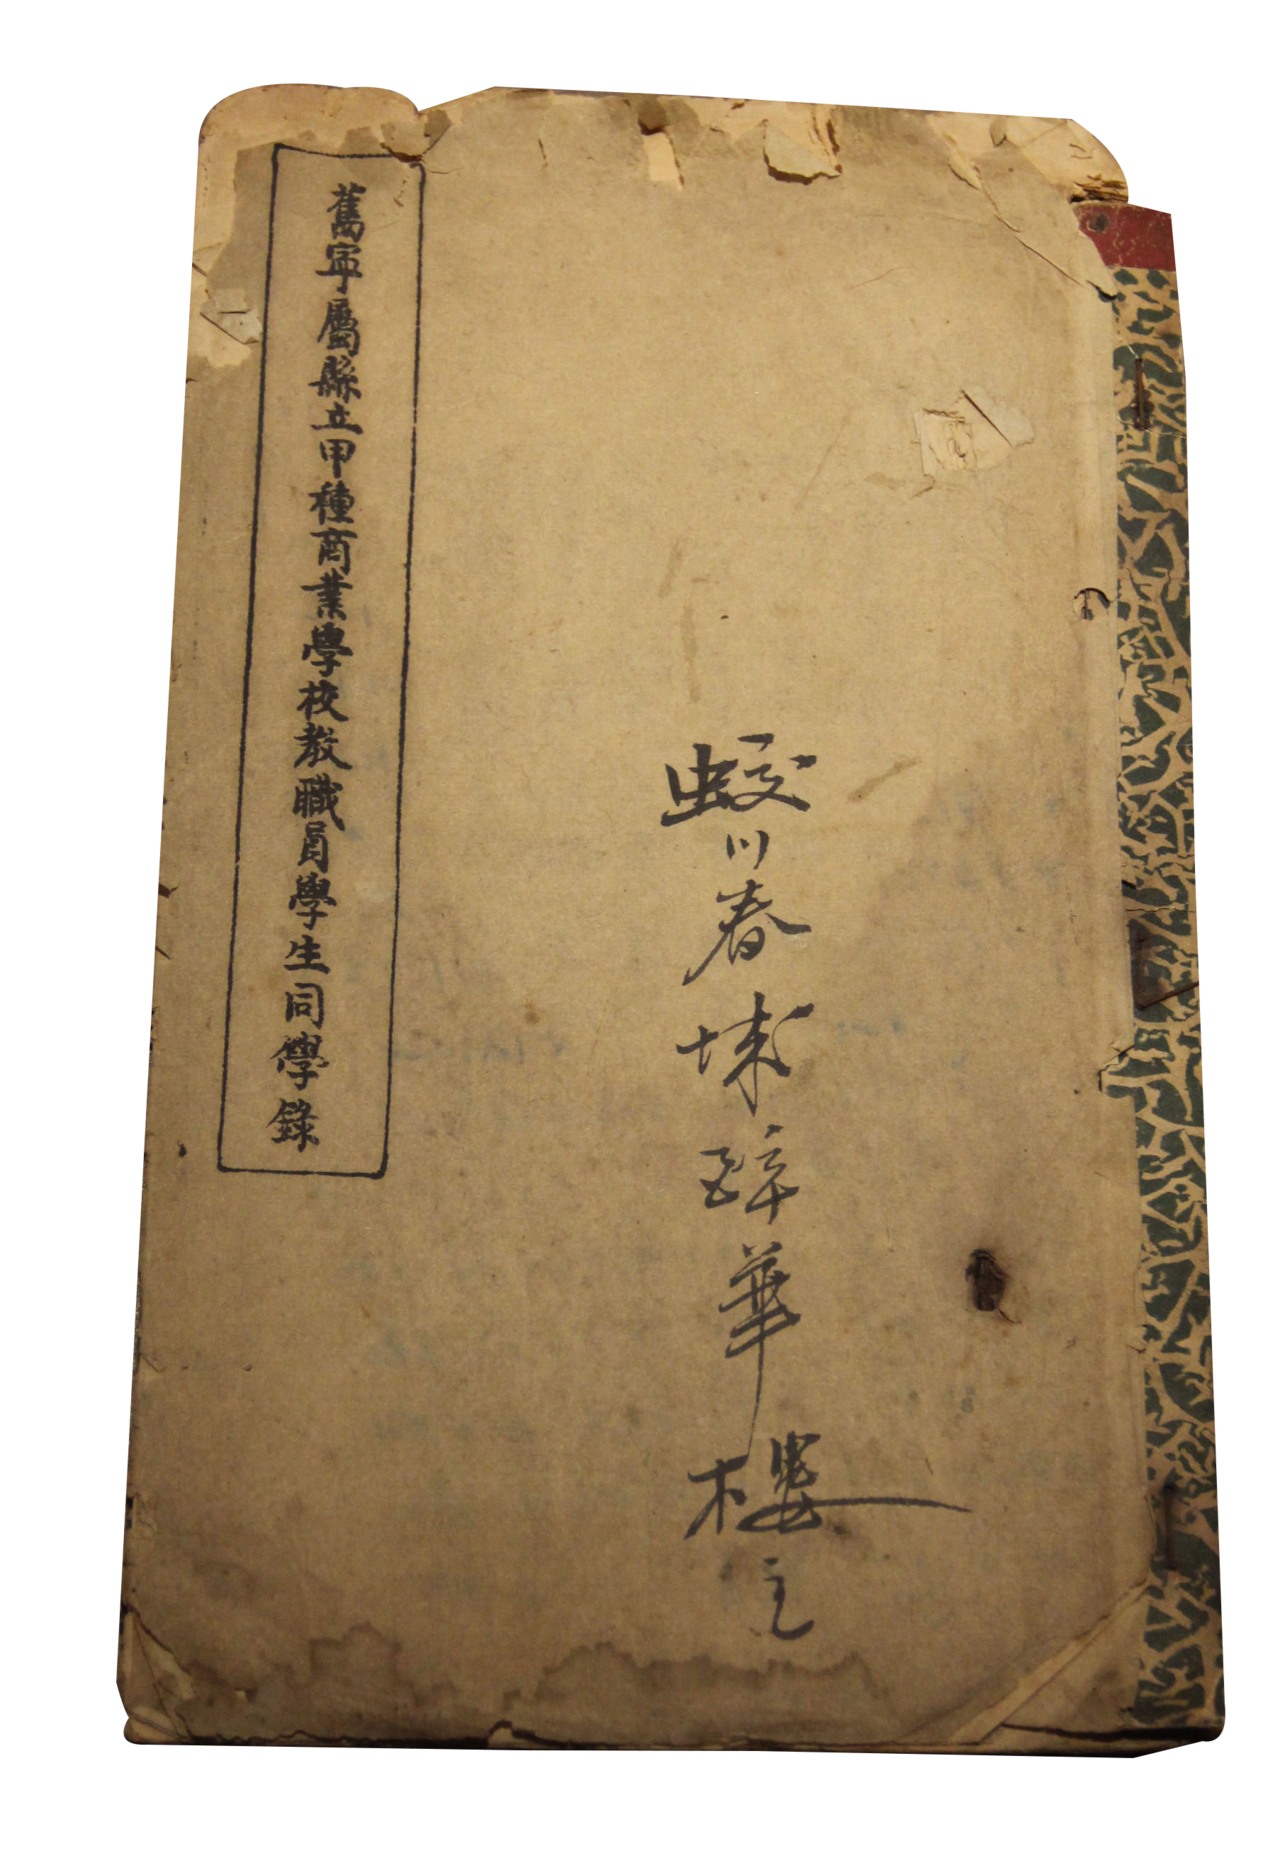 蛟川春華樓主
舊寧屬縣立甲種商業學校教職員學生同學錄